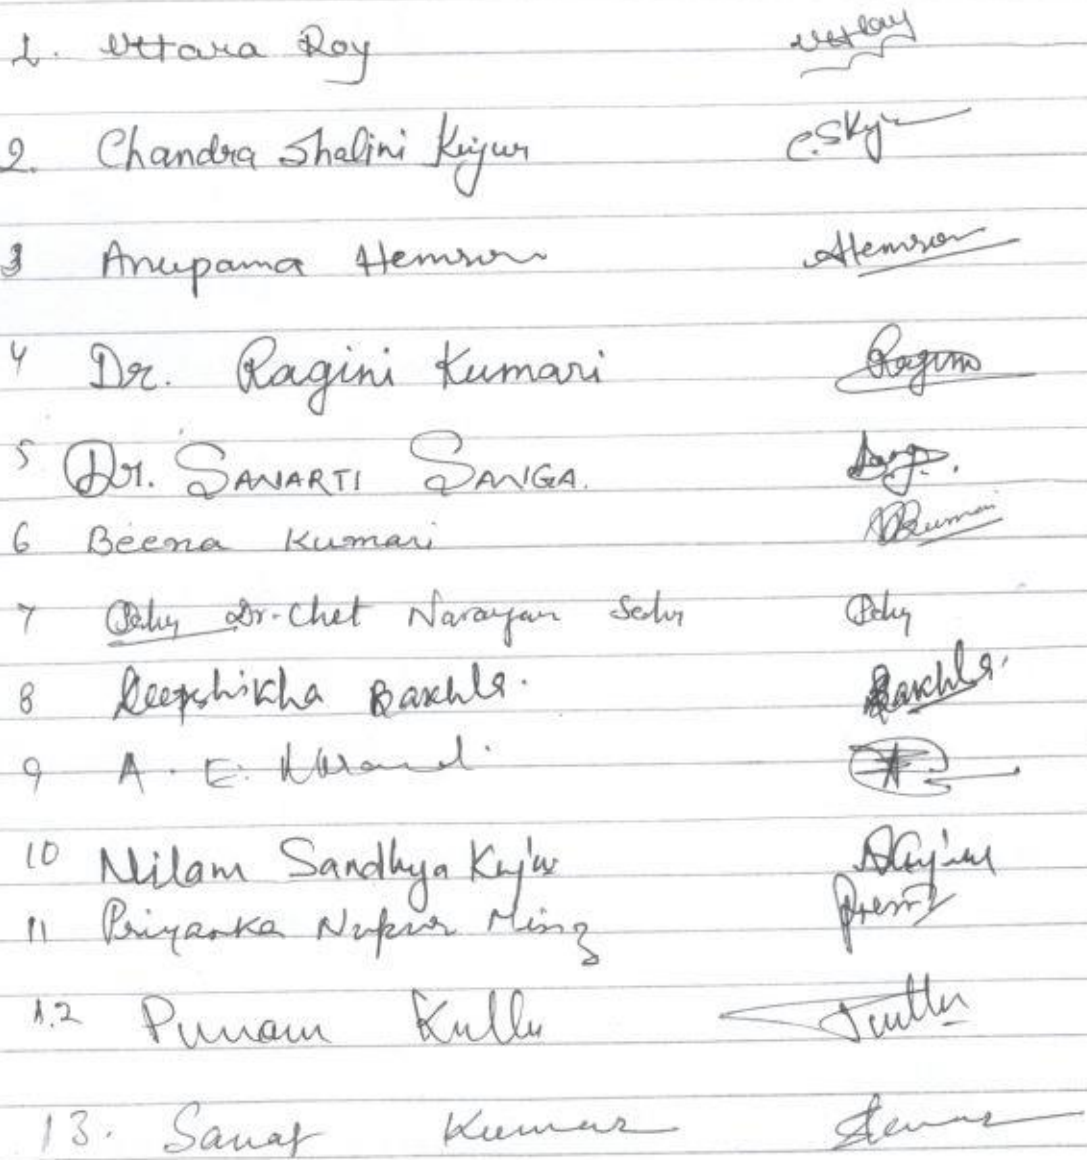 1. Uttara Roy
2. Chandra Shalini Kujur C.SKj
3 Anupama Hemrom AHemrom
4 Dr. Ragini Kumari Ragini
5 Dr. SANARTI SANGA.
6 Beena Kumari BKumari
7 Dr. Chet Narayan Sahu
8 Deepshikha Baxhla. Baxhla.
9 A. E.
10 Nilam Sandhya Kujur
11 Priyanka Nupur Minz
12 Punam Kullu Kullu
13. Sanat Kumar